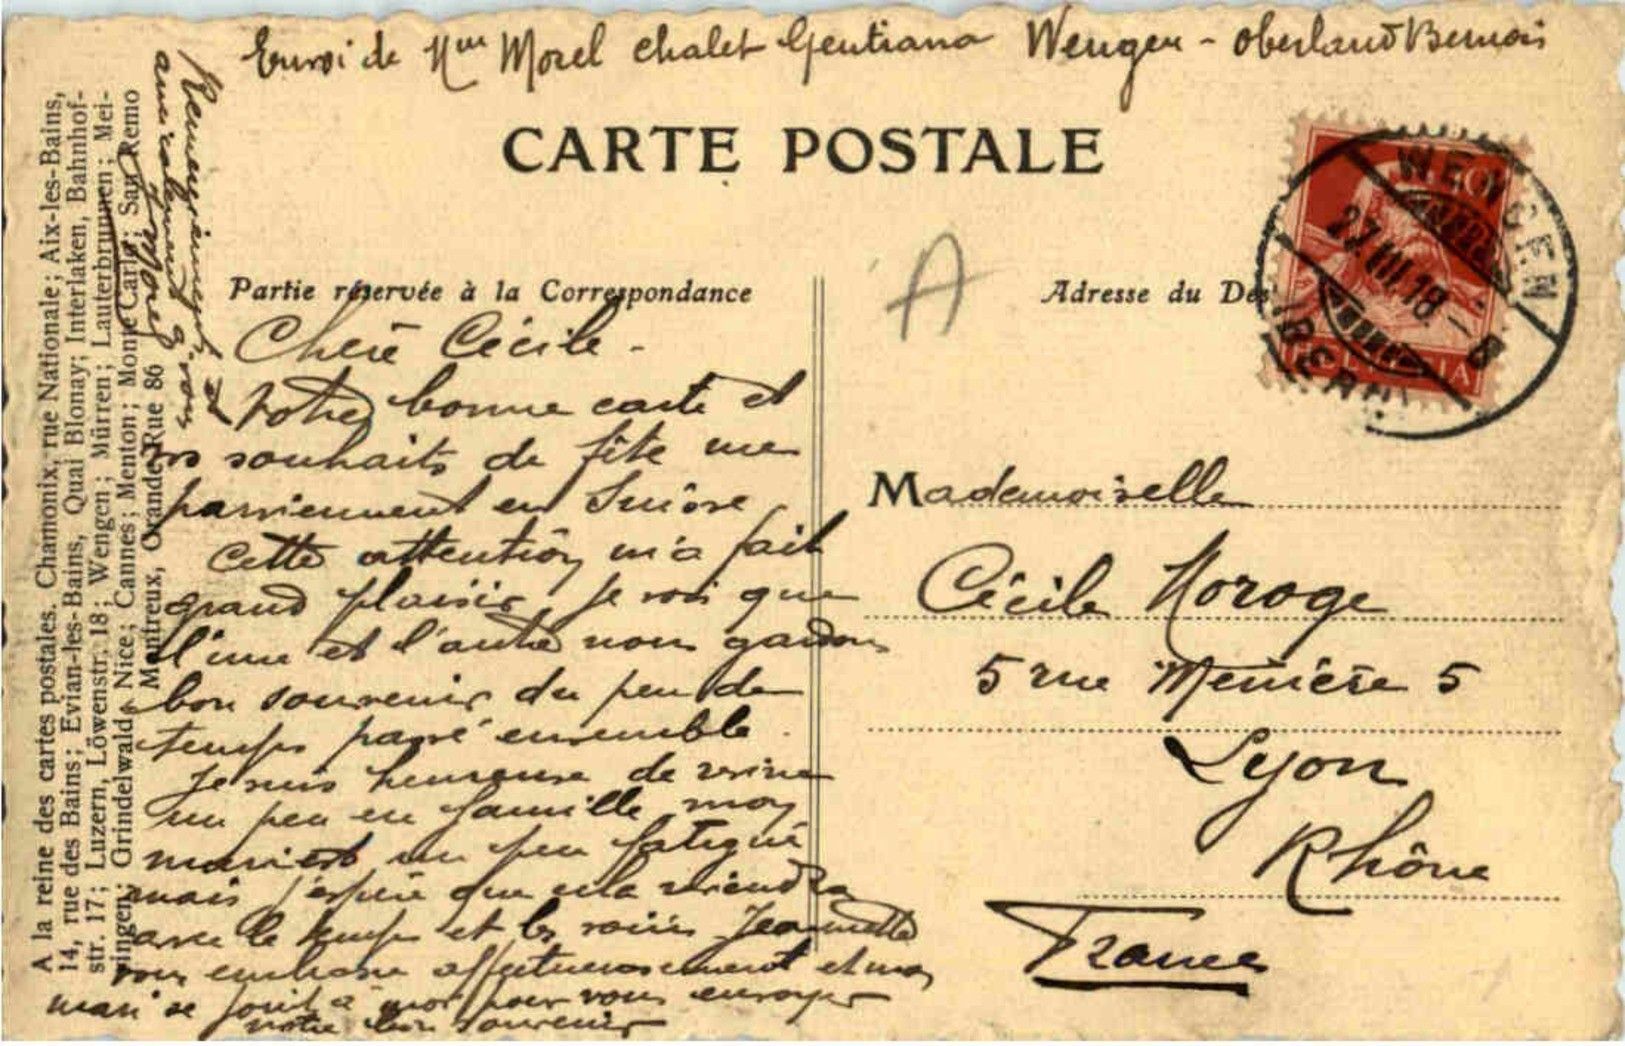 Envoi de Mme Morel chalet Gentiana Wengen - Oberland Bernois
CARTE POSTALE
Partie réservée à la Correspondance
Chère Cécile -
Votre bonne carte et
vos souhaits de fête me
parviennent en Suisse
Cette attention m'a fait
grand plaisir je vois que
l'une et l'autre nous gardons
bon souvenir du peu de
temps passé ensemble.
Je suis heureuse de vivre
un peu en famille, mon
mari est un peu fatigué
mais j'espère que cela viendra
avec le temps et les soins Jeannette
vous embrasse affectueusement et mon
mari se joint à moi pour vous envoyer
notre bon souvenir
amicalement
Morel
A
Adresse du Des
Mademoiselle
Cécile Noroge
5 rue Menière 5
Lyon
Rhône
France
WENGEN
27.III.18.-8
(BERN)
10
HELVETIA
A la reine des cartes postales. Chamonix, rue Nationale; Aix-les-Bains,
14, rue des Bains; Evian-les-Bains, Quai Blonay; Interlaken, Bahnhof-
str. 17; Luzern, Löwenstr. 18; Wengen; Mürren; Lauterbrunnen; Mei-
ringen; Grindelwald; Nice; Cannes; Menton; Monte Carlo; San Remo
Montreux, Grande Rue 86